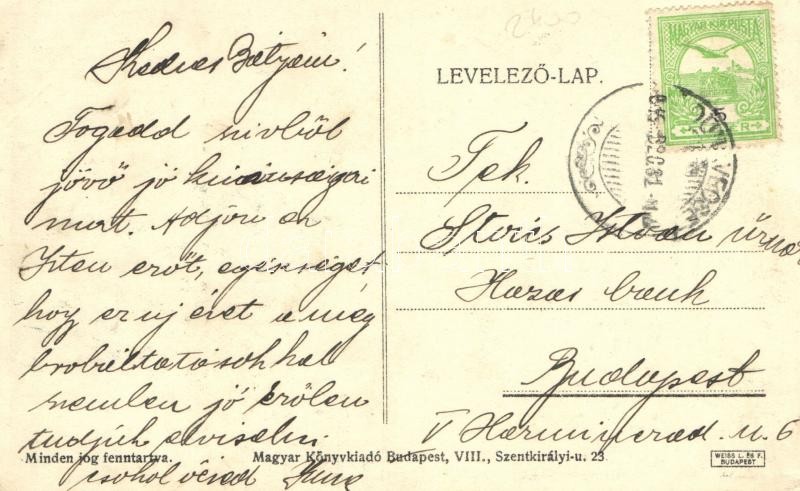 Kedves Bátyám!
Fogadd szivböl
jövö jó kivánságai
mat. Adjon az
Isten eröt, egészséget
hogy ez uj évet a meg
probáltatásokkal
szemben jó erölen
tudjuk elviselni.
csokol öcséd
LEVELEZŐ-LAP.
MAGYAR KIR. POSTA
Tek.
István úrnak
Hazai bank
Budapest
V Harmincad. u. 6
Minden jog fenntartva.
Magyar Könyvkiadó Budapest, VIII., Szentkirályi-u. 23.
WEISS L. ÉS F.
BUDAPEST